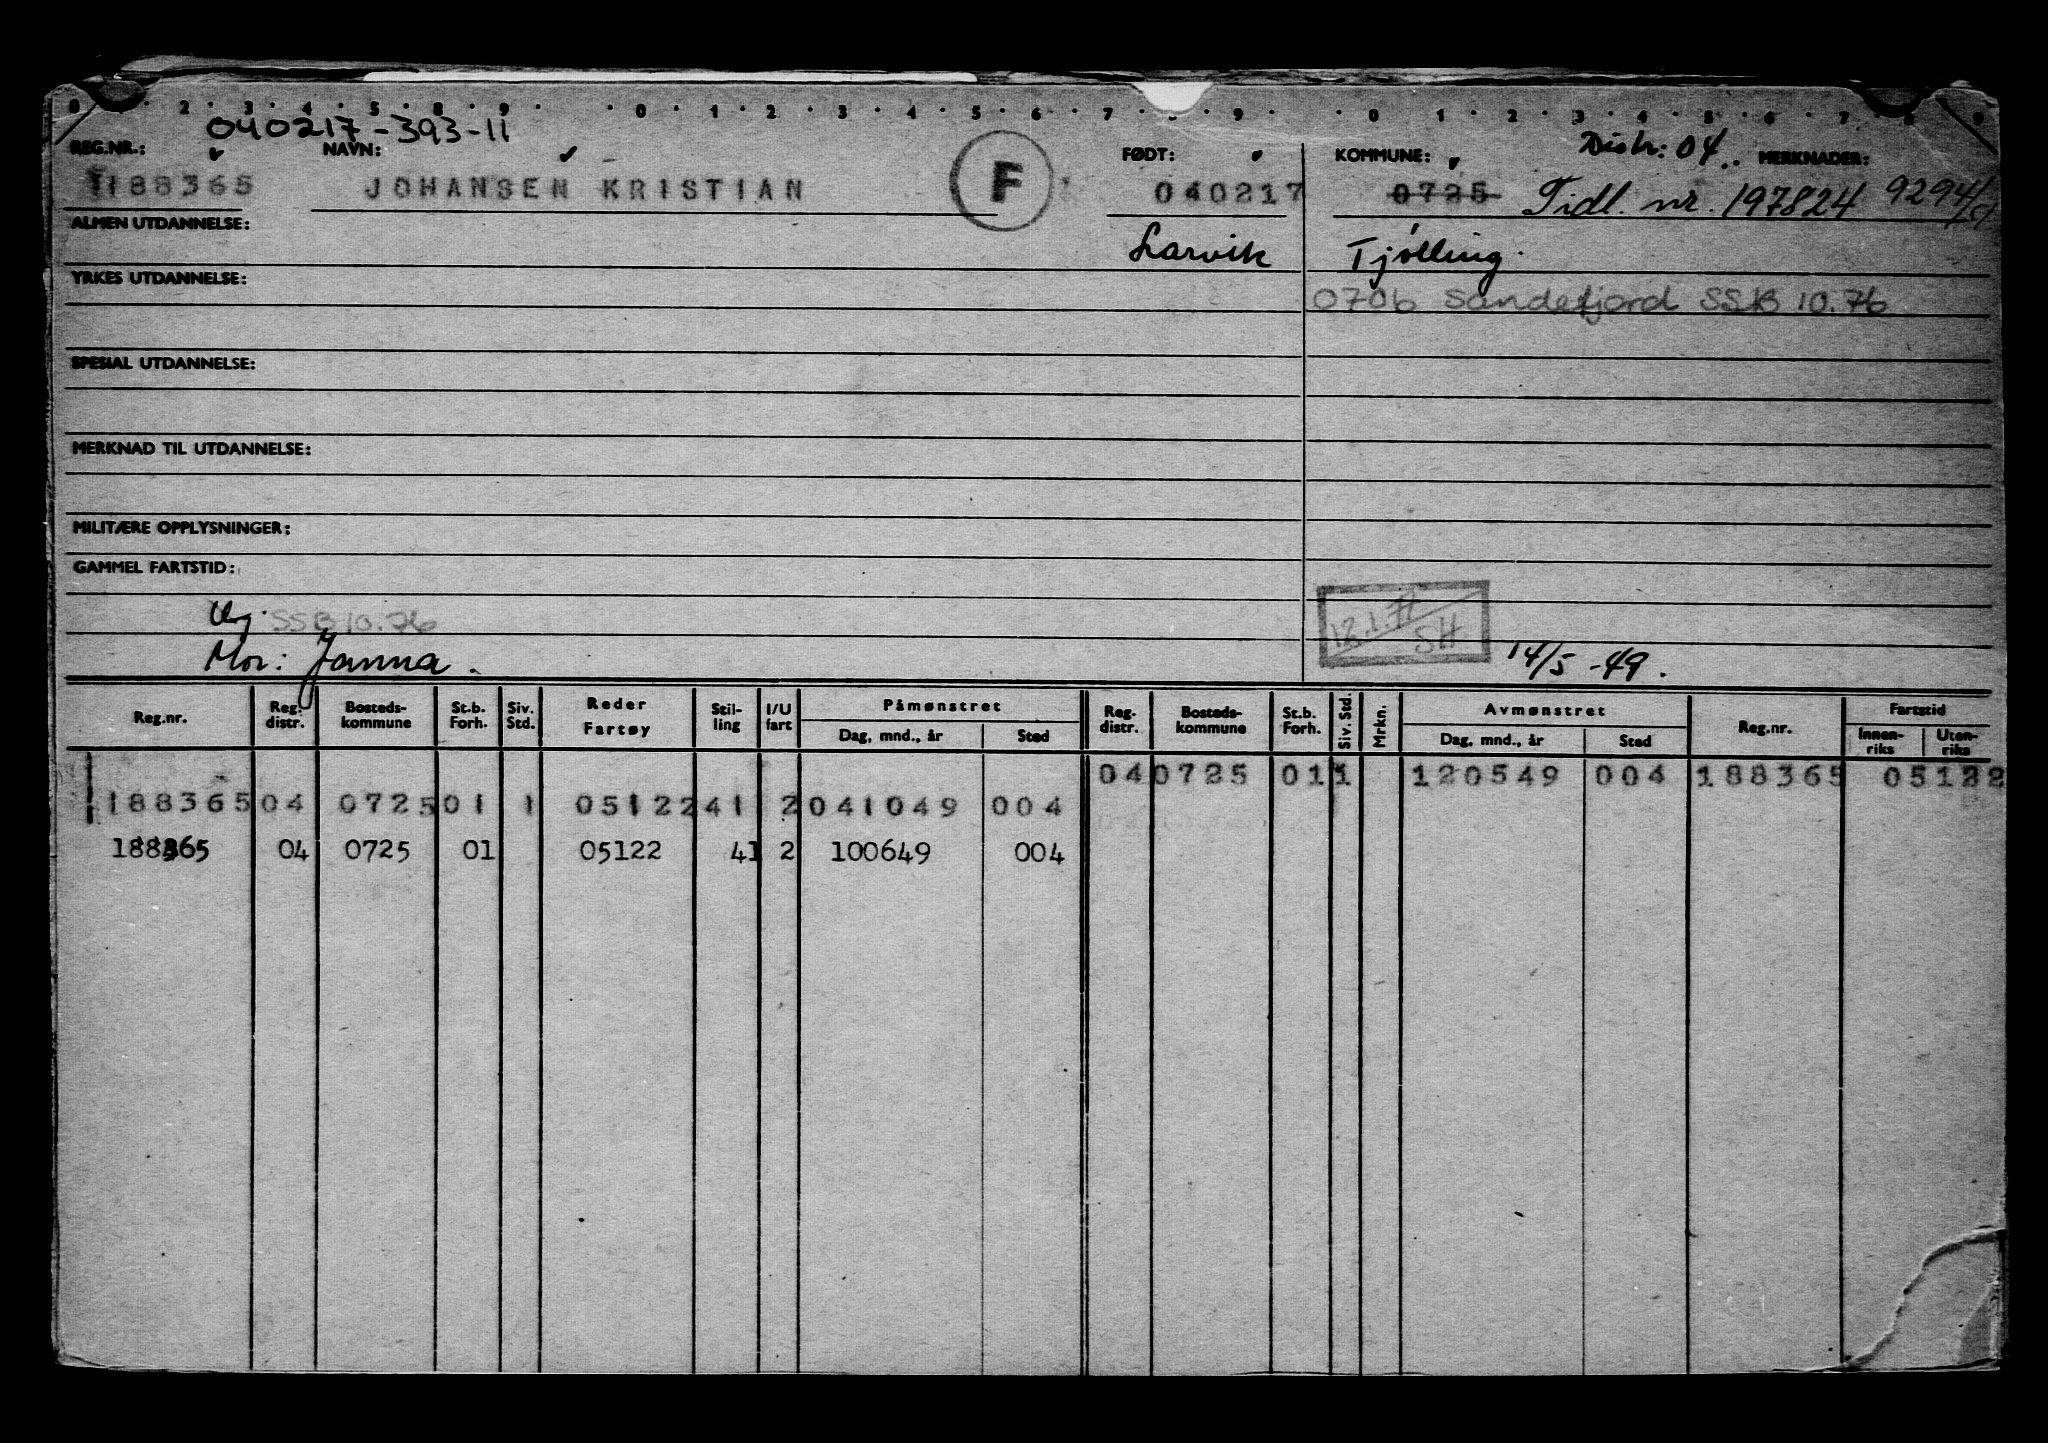 0 2 3 4 5 8 9 0 1 2 3 4 5 6 7 9 0 1 2 3 4 5 6 7 8 9
040217-393-11
Distr: 04.
REG.NR.: NAVN: FØDT: KOMMUNE: MERKNADER:
188365 JOHANSEN KRISTIAN F 040217 0725 Tidl. nr. 197824
ALMEN UTDANNELSE:
Larvik Tjølling
YRKES UTDANNELSE:
0706 Sandefjord SSB 10.76
SPESIAL UTDANNELSE:
MERKNAD TIL UTDANNELSE:
MILITÆRE OPPLYSNINGER:
GAMMEL FARTSTID:
Ug. SSB 10.76
12.1.71 SH
Mor: Janna.
14/5-49.
Reg.nr. Reg. distr. Bosteds-kommune St.b. Forh. Siv. Std. Reder Fartøy Stil-ling I/U fart Påmønstret Dag, mnd., år Sted Reg. distr. Bosteds-kommune St.b. Forh. Siv. Std. Mrkn. Avmønstret Dag, mnd., år Sted Reg.nr. Fartstid Innen-riks Uten-riks
04 0725 01 1 120549 004 188365 05122
188365 04 0725 01 1 05122 41 2 041049 004
188365 04 0725 01 05122 41 2 100649 004